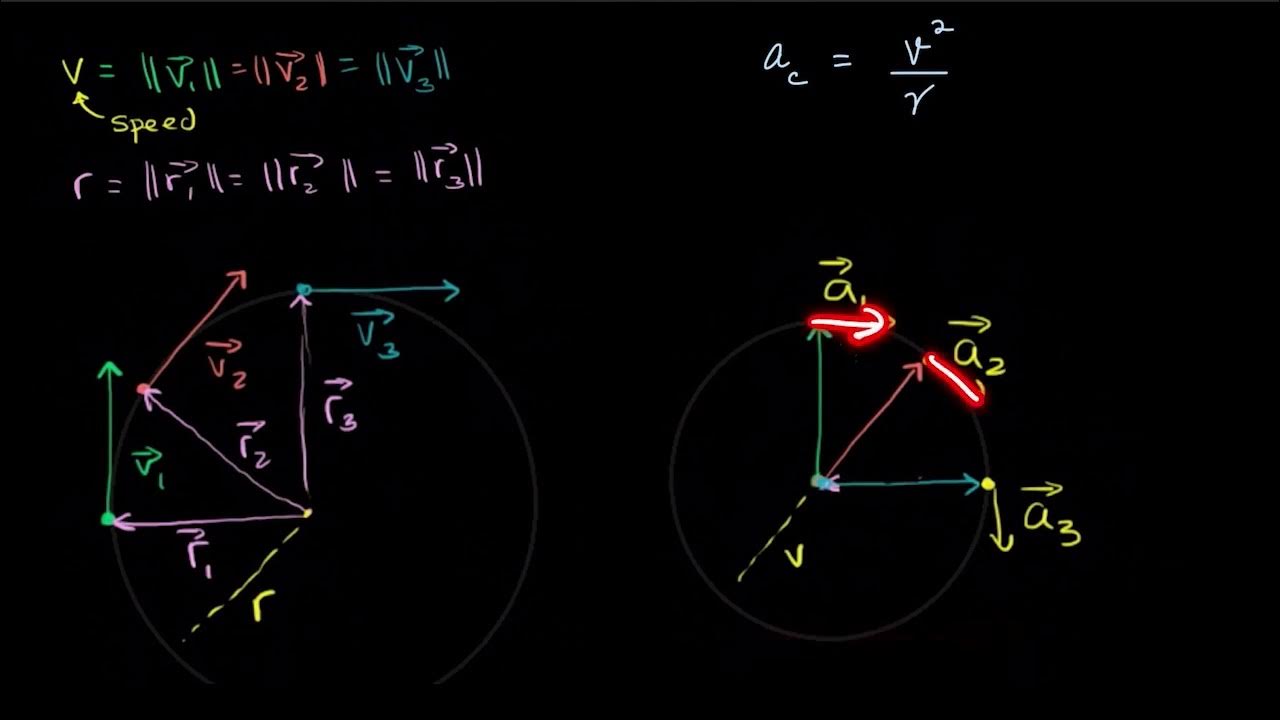 v = ||v⃗₁|| = ||v⃗₂|| = ||v⃗₃||
speed
r = ||r⃗₁|| = ||r⃗₂|| = ||r⃗₃||
a_c = v²/r
v⃗₁
v⃗₂
v⃗₃
r⃗₁
r⃗₂
r⃗₃
r
a⃗₁
a⃗₂
a⃗₃
v